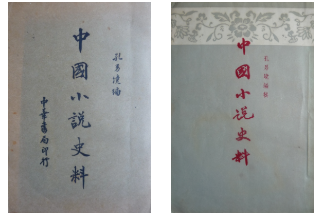 孔另境編
中國小說史料
中華書局印行
孔另境編輯
中國小說史料